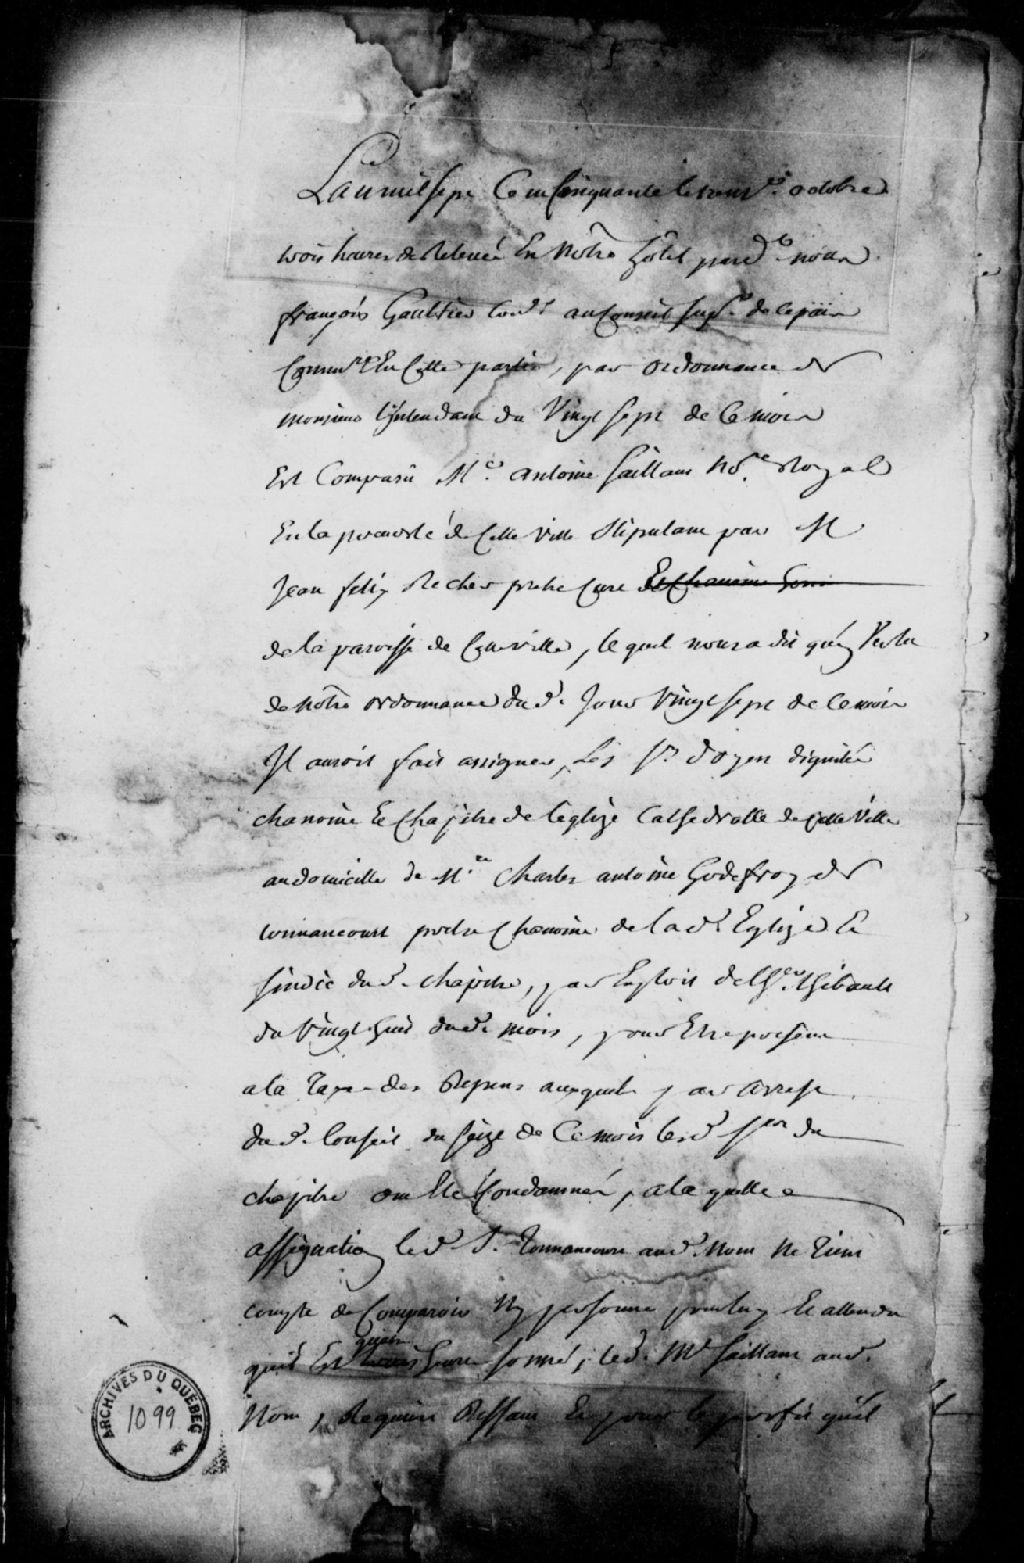 Lan mil sept Cent Cinquante le octobre
trois heures de Relevée En Notre hôtel pard.t nous
françois Gaultier Cons.r au Conseil Sup.r de ce païs
Commre En Cette partie, par ordonnance de
Monsieur L'Intendant du Vingt Sept de Ce mois
Est Comparu M.e antoine Saillant No.re Royal
En la prevosté de Cette Ville Stipulant pour M
Jean felix Recher pretre Curé
de la paroisse de Cette ville, lequel nous a dit qu'en Vertu
de Notre ordonnance dud. Jour Vingt Sept de Ce mois
Il auroit fait assigner, Les S.rs doyen dignités
chanoine Et Chapitre de l'eglize Cathedralle de Cette Ville
au domicille de M.re Charles antoine Godefroy de
Tonnancourt pretre Chanoine de lad. Eglize Et
Sindic dud. Chapitre, par Exploit de Thibault
du Vingt huit dud. mois, pour Etre present
a la Taxe des Depens auxquels par arrest
dud. Conseil du Seize de Ce mois lesd. S.rs du
Chapitre ont Eté Condamnés, a la quelle
assignation led. S. Tonnancour aud. Nom Ne Tient
compte de Comparoir Ny personne pour luy Et attendu
quil Est quatre heures Sonnée, led. M.e Saillant aud.
Nom, Requiert Deffaut Et pour le profit qu'il
ARCHIVES DU QUÉBEC
1099